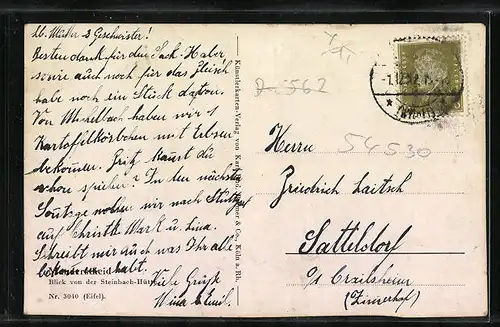 lb. Mutter & Geschwister!
Besten dank für den Sack. Haber
sowie auch noch für das Fleisch
habe noch ein Stück davon.
Von Michelbach haben wir 1
Kartoffelkörbchen mit Erbsen
bekommen. Fritz kannst du
schon spielen? In den nächsten
Sontage wollen wir nach Stuttgart
auf Christk Mark u. Lina.
Schreibt mir auch was Ihr alle
habt. Viele Grüße
Blick von der Steinbach-Hütte
Nr. 3040 (Eifel).
Künstlerkarten-Verlag von Karl Rud. & Co., Köln a. Rh.
D-3562
54530
Herrn
Friedrich Laitsch
Satteldorf
o/s Crailsheim